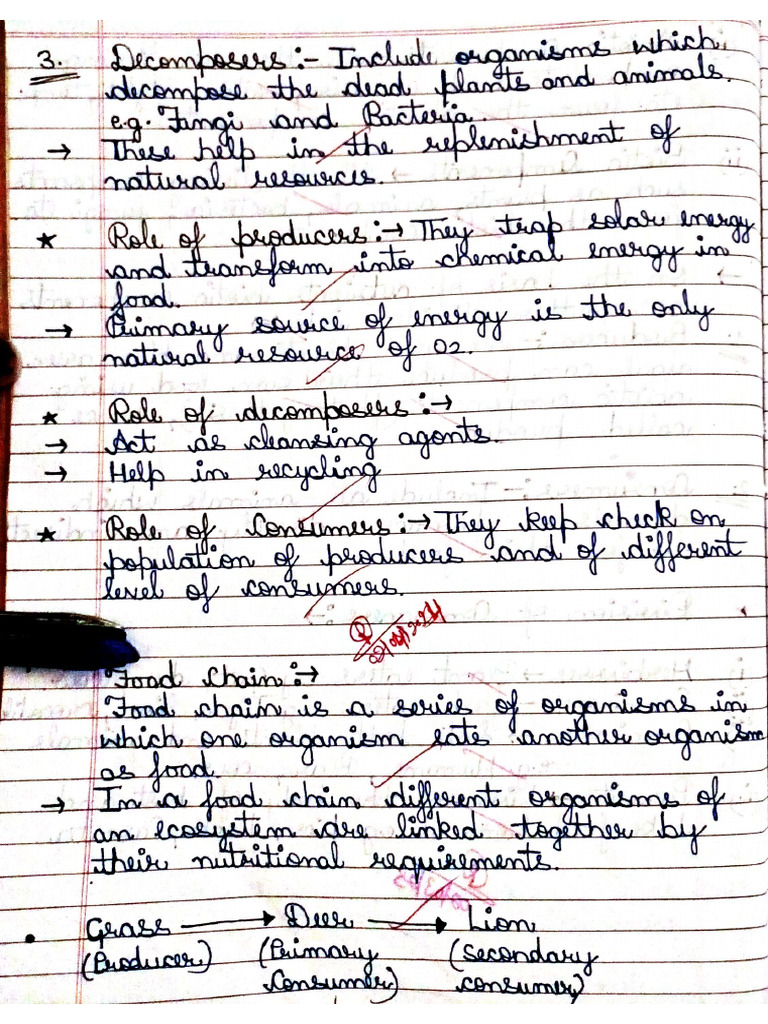 3. Decomposers:- Include organisms which
decompose the dead plants and animals.
e.g. Fungi and Bacteria.
→ These help in the replenishment of
natural resources.
★ Role of producers:→ They trap solar energy
and transform into chemical energy in
food.
→ Primary source of energy is the only
natural resource of O2.
★ Role of decomposers:→
→ Act as cleansing agents.
→ Help in recycling
★ Role of Consumers:→ They keep check on
population of producers and of different
level of consumers.
Food Chain:→
Food chain is a series of organisms in
which one organism eats another organism
as food.
→ In a food chain different organisms of
an ecosystem are linked together by
their nutritional requirements.
• Grass → Deer → Lion
(Producer) (Primary (Secondary
Consumer) consumer)